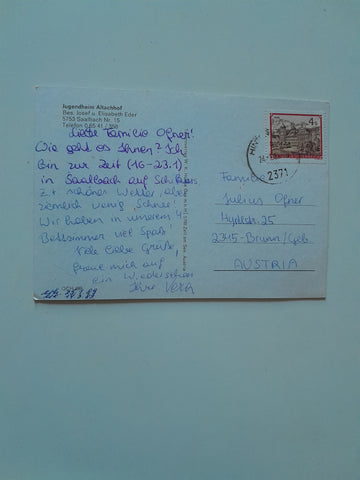 Jugendheim Altachhof
Bes. Josef u. Elisabeth Eder
5753 Saalbach Nr. 15
Telefon 0 65 41 / 358
Liebe Familie Ofner!
Wie geht es Ihnen? Ich
bin zur Zeit (16-23.1)
in Saalbach auf Schikurs
z.t schönes Wetter, aber
ziemlich wenig Schnee!
Wir haben in unserem 4
Bettzimmer viel Spaß!
Viele liebe Grüße,
freue mich auf
ein Wiedersehen
Ihre
4 S
2371
Familie
Julius Ofner
2345-Brunn/Geb.
AUSTRIA